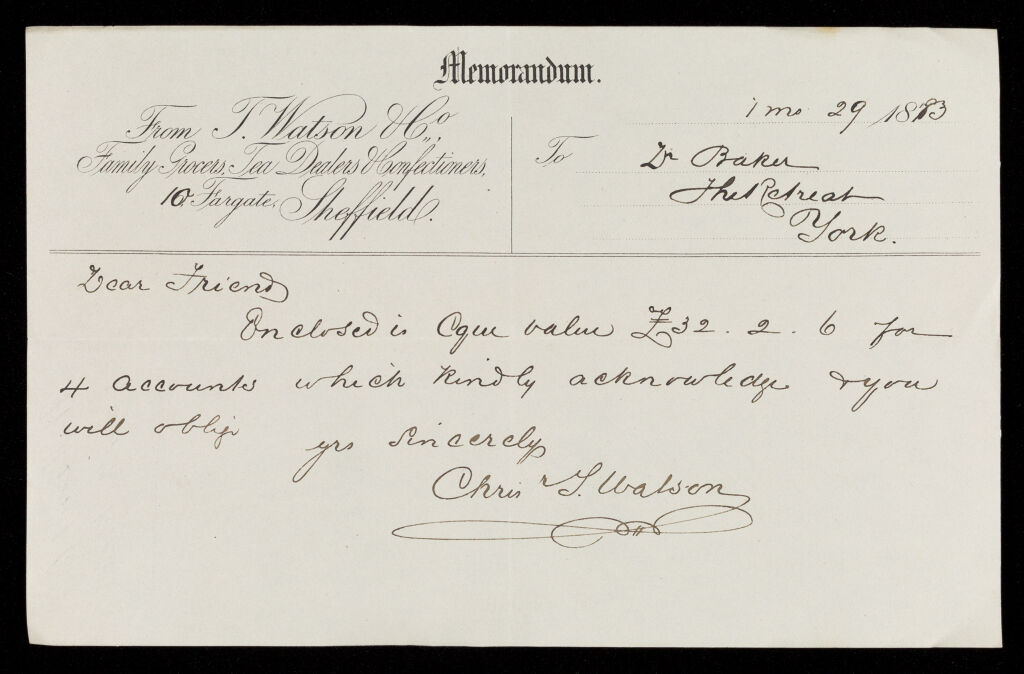 Memorandum.
From T. Watson & Co.,
Family Grocers, Tea Dealers & Confectioners,
10 Fargate, Sheffield.
1 mo 29 1873
To Dr Baker
The Retreat
York.
Dear Friend
Enclosed is Cque value £32. 2. 6 for
4 accounts which kindly acknowledge & you
will oblige
yrs Sincerely
Chrisr T. Watson